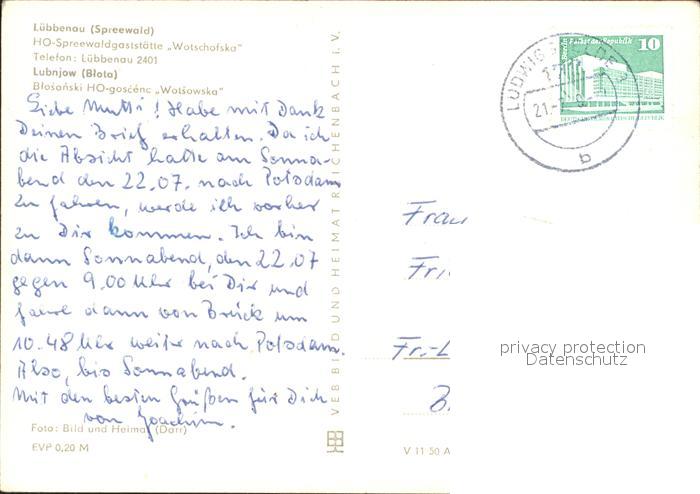 Lübbenau (Spreewald)
HO-Spreewaldgaststätte „Wotschofska"
Telefon: Lübbenau 2401
Lubnjow (Błota)
Błośański HO-gosćénc „Wótšowska"
Liebe Mutti! Habe mit Dank
Deinen Brief erhalten. Da ich
die Absicht hatte am Sonna-
bend den 22.07. nach Potsdam
zu fahren, werde ich vorher
zu Dir kommen. Ich bin
dann Sonnabend, den 22.07
gegen 9.00 Uhr bei Dir und
fahre dann von Brück um
10.48 Uhr weiter nach Potsdam.
Also, bis Sonnabend.
Mit den besten Grüßen für Dich
von Joachim.
Foto: Bild und Heimat (Darr)
EVP 0,20 M
VEB BILD UND HEIMAT REICHENBACH I. V.
V 11 50 A
Berlin, Palast der Republik
10
LUDWIGSFELDE
21.
b
Frau
Fr.-L
privacy protection
Datenschutz